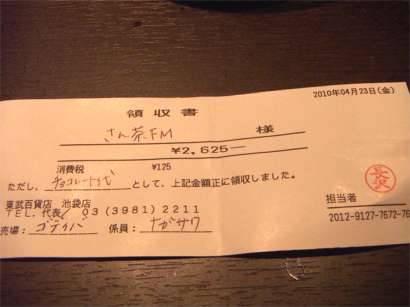 2010年04月23日(金)
領収書
さん茶FM 様
¥2,625—
消費税 ¥125
ただし、チョコレート代 として、上記金額正に領収しました。
東武百貨店 池袋店
TEL.代表 03(3981)2211
担当者
売場: ゴディバ 係員: ナガサワ
2012-9127-7672-76